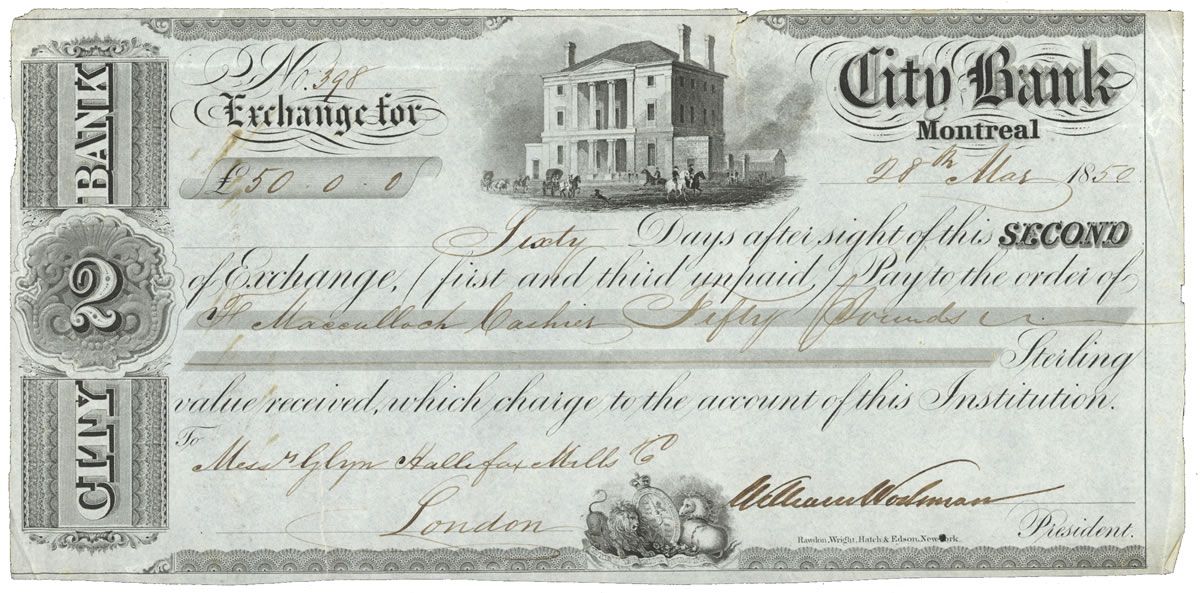 No. 398
Exchange for
£50 . 0 . 0
City Bank
Montreal
28th Mar 1850
Sixty Days after sight of this SECOND
of Exchange, (first and third unpaid) Pay to the order of
F Macculloch Cashier Fifty Pounds
Sterling
value received, which charge to the account of this Institution.
To
Messrs Glyn Hallifax Mills & Co
London
William Workman
President.
Rawdon, Wright, Hatch & Edson, New York.
CITY 2 BANK